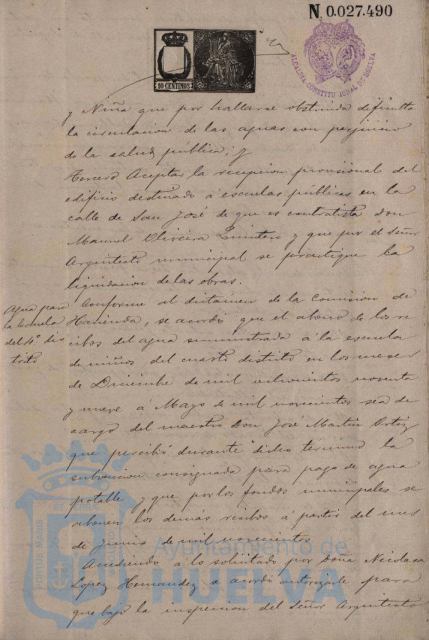 N. 0.027.490
10 CENTIMOS
ALCALDIA CONSTITUCIONAL DE HUELVA
y Niña que por hallarse obstruida dificulta
la circulacion de las aguas con perjuicio
de la salud publica; y
Tercero Aceptar la recepcion provisional del
edificio destinado á escuelas públicas en la
calle de San José de que es contratista don
Manuel Oliveira Quintero y que por el Señor
Arquitecto municipal se practique la
liquidacion de las obras.
Agua para
la Escuela
del 4º dis
trito
Conforme al dictamen de la Comision de
Hacienda, se acordó que el abono de los re
cibos del agua suministrada á la escuela
de niños del cuarto distrito en los meses
de Diciembre de mil ochocientos noventa
y nueve á Mayo de mil novecientos sea de
cargo del maestro Don José Martin Ortiz
que percibió durante dicho termino la
subvencion consignada para pago de agua
potable y que por los fondos municipales se
abonen los demás recibos á partir del mes
de Junio de mil novecientos.
Accediendo á lo solicitado por Doña Nicolasa
Lopez Hernandez se acordó autorizarle para
que bajo la inspeccion del Señor Arquitecto
Ayuntamiento de
HUELVA